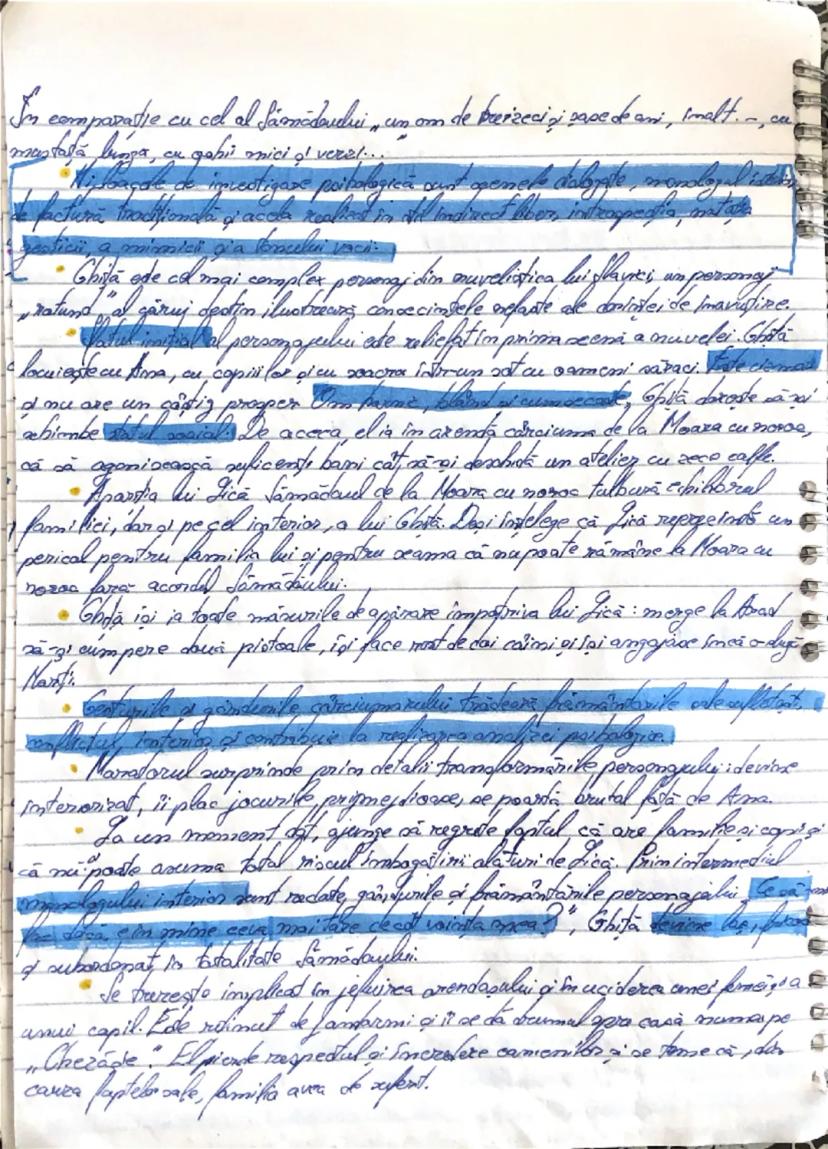 În comparație cu cel al Sămădăului „un om de treizeci și șase de ani, înalt. -, cu
mustață lungă, cu ochii mici și verzi..."
• Mijloacele de investigare psihologică sunt scenele dialogate, monologul interior
de factură tradițională și acela realizat în stil indirect liber, introspecția, notația
gesticii, a mimicii și a tonului vocii.
• Ghiță este cel mai complex personaj din nuvelistica lui Slavici, un personaj
„rotund" al cărui destin ilustrează consecințele nefaste ale dorinței de înavuțire.
• Statul inițial al personajului este reliefat în prima scenă a nuvelei. Ghiță
locuiește cu Ana, cu copiii lor și cu soacra într-un sat cu oameni săraci. Este cizmar
și nu are un câștig prosper. Om harnic, blând și cumsecade, Ghiță dorește să-și
schimbe statul social. De aceea, el ia în arendă cârciuma de la Moara cu noroc,
că să agonisească suficienți bani cât să-și deschidă un atelier cu zece calfe.
• Apariția lui Lică Sămădăul de la Moara cu noroc tulbură echilibrul
familiei, dar și pe cel interior, a lui Ghiță. Deși înțelege că Lică reprezintă un
pericol pentru familia lui și pentru seama că nu poate rămâne la Moara cu
noroc fără acordul Sămădăului.
• Ghiță își ia toate măsurile de apărare împotriva lui Lică: merge la Arad
să-și cumpere două pistoale, își face rost de doi câini și își angajase încă o slugă
Marți.
• Gesturile și gândurile cârciumarului trădează frământările sale sufletești,
conflictul interior și contribuie la realizarea analizei psihologice.
• Naratorul surprinde prin detalii transformările personajului: devine
interiorizat, îi plac jocurile primejdioase, se poartă brutal față de Ana.
• La un moment dat, ajunge să regrete faptul că are familie și copii și
că nu poate asuma total riscul îmbogățirii alături de Lică. Prin intermediul
monologului interior sunt redate gândurile și frământările personajului. Ce să-mi
fac dacă e în mine ceva mai tare decât voința mea?", Ghiță devine laș,
și subordonat în totalitate Sămădăului.
• Se trezește implicat în jefuirea arendașului și în uciderea unei femei și a
unui copil. Este reținut de jandarmi și i se dă drumul spre casă numai pe
„Chezășie". El pierde respectul și încredere oamenilor și se teme că, din
cauza faptelor sale, familia avea de suferit.